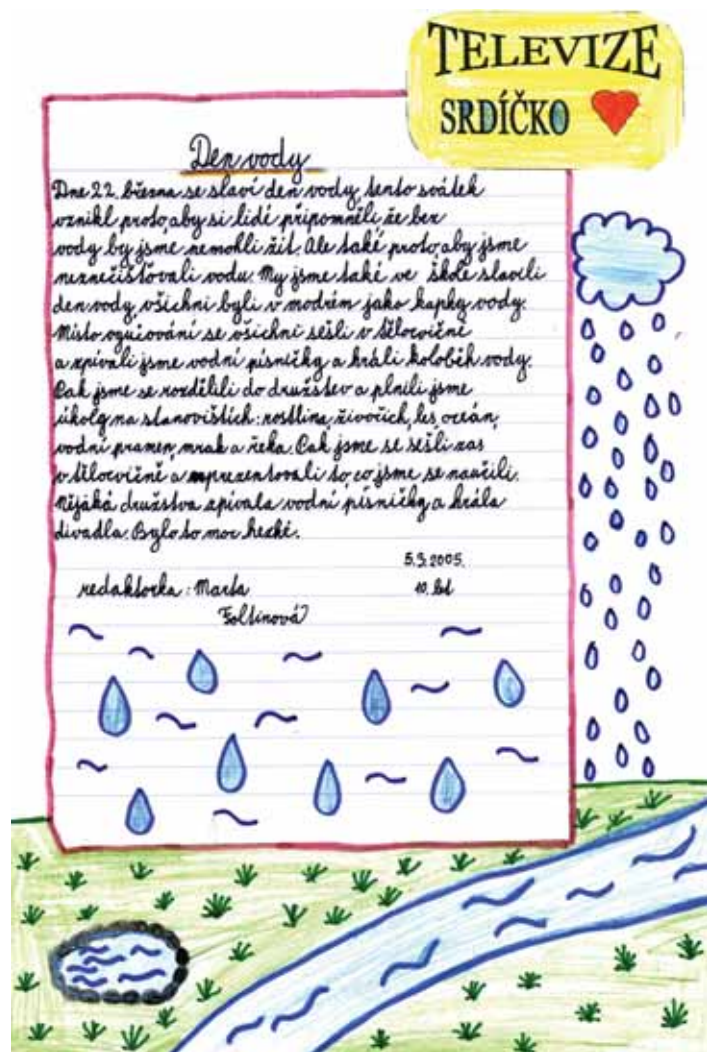 TELEVIZE
SRDÍČKO
Den vody
Dne 22. března se slaví den vody, tento svátek
vznikl proto, aby si lidé připomněli že bez
vody by jsme nemohli žít. Ale také proto, aby jsme
neznečišťovali vodu. My jsme také ve škole slavili
den vody, všichni byli v modrém jako kapky vody.
Místo vyučování se všichni sešli v tělocvičně
a zpívali jsme vodní písničky a hráli koloběh vody.
Pak jsme se rozdělili do družstev a plnili jsme
úkoly na stanovištích: rostlina, živočich, les, oceán,
vodní pramen, mrak a řeka. Pak jsme se sešli zas
v tělocvičně a prezentovali to, co jsme se naučili.
Nějáká družstva zpívala vodní písničky a hrála
divadla. Bylo to moc hezké.
5.3.2005.
redaktorka: Marta 10. let
Foltinová